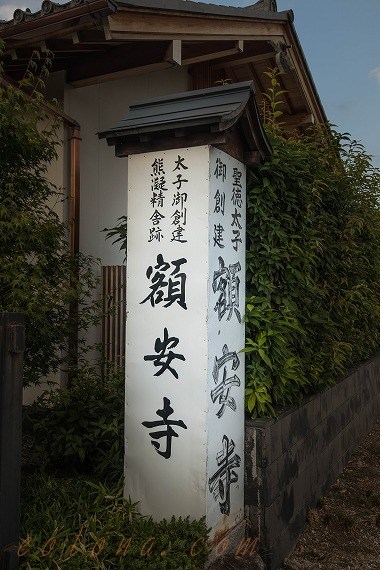 太子御創建
熊凝精舎跡
額安寺
聖徳太子
御創建
額安寺
eotona.com